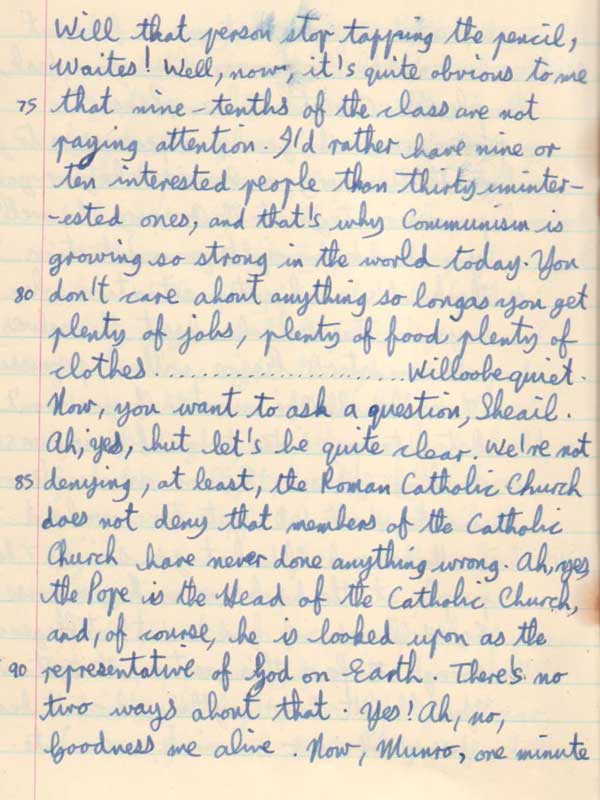 Will that person stop tapping the pencil,
Waites! Well, now, it's quite obvious to me
75 that nine-tenths of the class are not
paying attention. I'd rather have nine or
ten interested people than thirty uninter-
-ested ones, and that's why Communism is
growing so strong in the world today. You
80 don't care about anything so long as you get
plenty of jobs, plenty of food, plenty of
clothes..........................Willoobequiet.
Now, you want to ask a question, Sheail.
Ah, yes, but let's be quite clear. We're not
85 denying, at least, the Roman Catholic Church
does not deny that members of the Catholic
Church have never done anything wrong. Ah, yes
the Pope is the Head of the Catholic Church,
and, of course, he is looked upon as the
90 representative of God on Earth. There's no
two ways about that. Yes! Ah, no,
Goodness me alive. Now, Munro, one minute